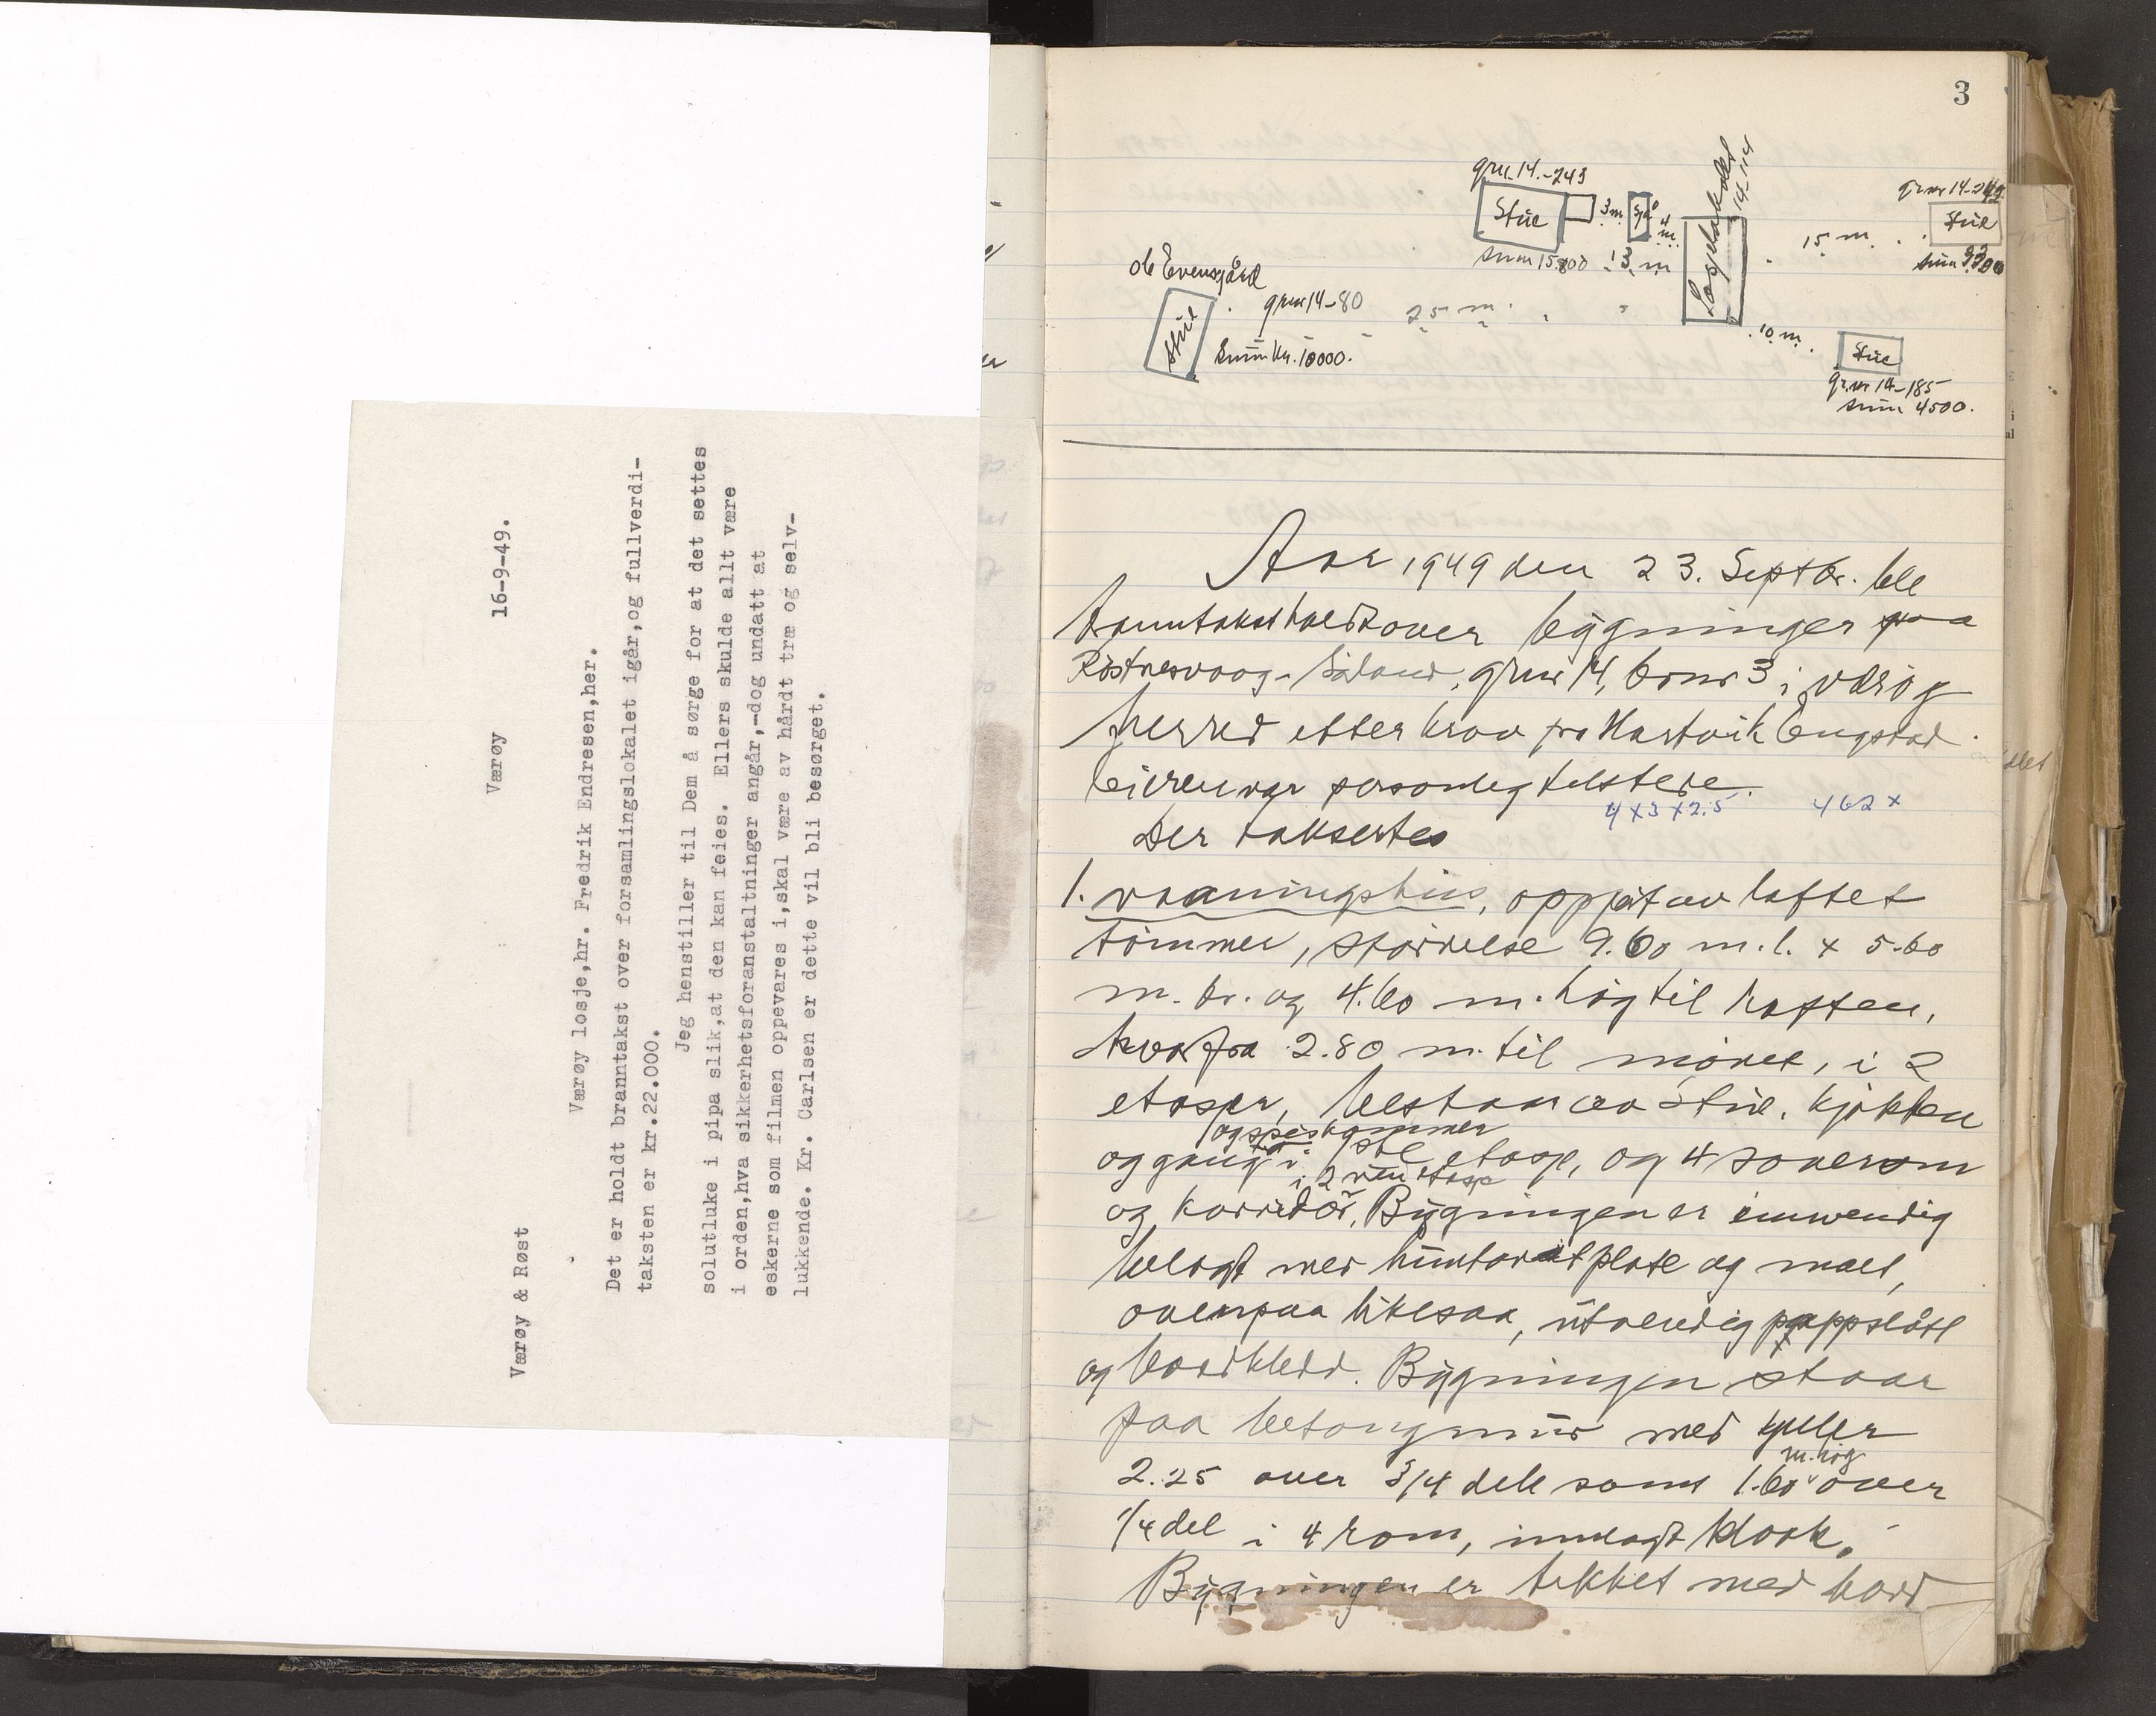 Værøy & Røst Værøy 16-9-49.
Værøy losje,hr. Fredrik Endresen,her.
Det er holdt branntakst over forsamlingslokalet igår,og fullverdi-
taksten er kr.22.000.
Jeg henstiller til Dem å sørge for at det settes
solutluke i pipa slik,at den kan feies. Ellers skulde allt være
i orden,hva sikkerhetsforanstaltninger angår,-dog undatt at
eskerne som filmen oppevares i,skal være av hårdt træ og selv-
lukkende. Kr. Carlsen er dette vil bli besørget.
3
grnr 14.-243
Stue
3 m
Sjå
4 m
Sum 15800
13 m
14-114
15 m.
grnr 14-249
Stue
Sum 9300
Ole Evensgård
Stue
grnr 14-80
Sum kr. 10000.
25 m.
10 m.
Stue
grnr 14-185
Sum 4500.
Aar 1949 den 23. Septbr. ble
branntakst holdt over bygninger paa
Röstnesvaag - Sörland, grnr 14, brnr 3 i værøy
herred etter krav fra Hartvik Engstad
Eieren var personlig tilstede.
4x3x2.5 462x
Der taksertes
1. vaaningshus, oppsat av laftet
tömmer, störrelse 9.60 m.l. x 5.60
m. br. og 4.60 m. hög til raften,
hvorfra 2.80 m. til mönet, i 2
etasjer, bestaar av Stue, kjökken
og spiskammer
og gang i 1ste etasje, og 4 soverom
i 2nen etasje
og korridor, Bygningen er innvendig
belagt med huntonitplate og malt,
ovenpaa likesaa, utvendig pappslått
og bordkledd. Bygningen staar
paa betongmur med kjeller
m. hög
2.25 over 3/4 dele samt 1.60 over
1/4 del i 4 rom, innlagt kloak.
Bygningen er tekket med bord